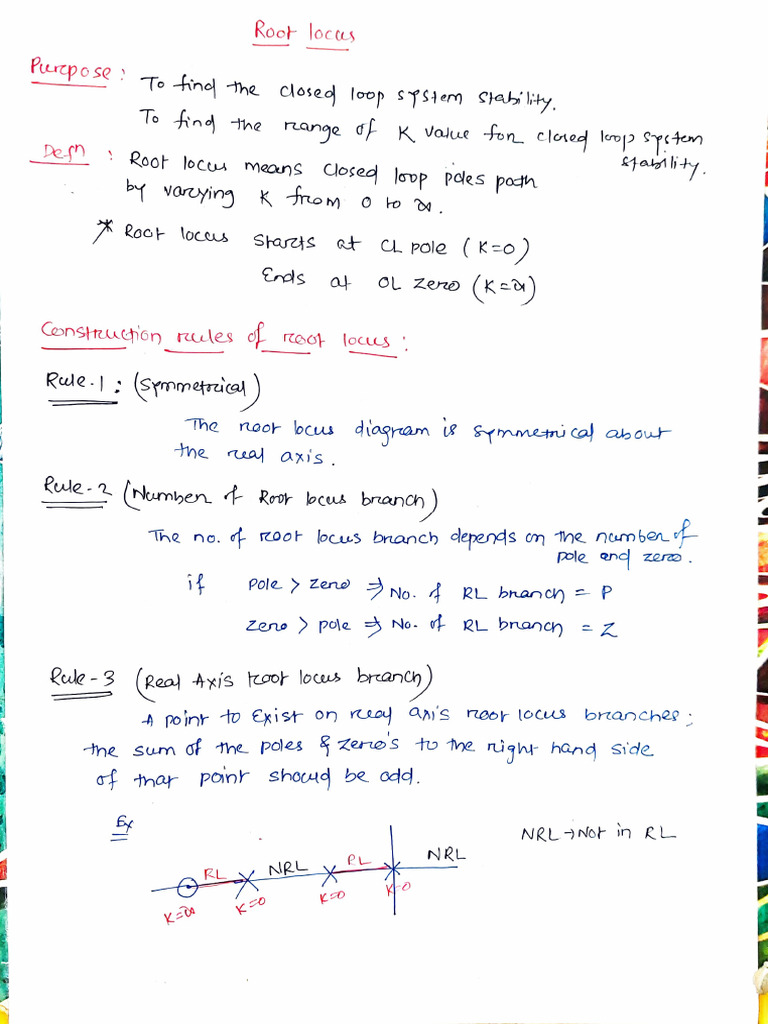 Root locus
Purpose : To find the closed loop system stability.
To find the range of K value for closed loop system stability.
Defn : Root locus means closed loop poles path
by varying K from 0 to ∞.
* Root locus starts at CL pole (K=0)
Ends at OL zero (K=∞)
Construction rules of root locus :
Rule-1 : (Symmetrical)
The root locus diagram is symmetrical about
the real axis.
Rule-2 (Number of Root locus branch)
The no. of root locus branch depends on the number of
pole and zero.
if pole > zero ⇒ No. of RL branch = P
zero > pole ⇒ No. of RL branch = Z
Rule-3 (Real Axis Root locus branch)
A point to Exist on real axis root locus branches;
the sum of the poles & zero's to the right hand side
of that point should be odd.
Ex
NRL → Not in RL
RL NRL RL NRL
K=∞ K=0 K=0 K=0